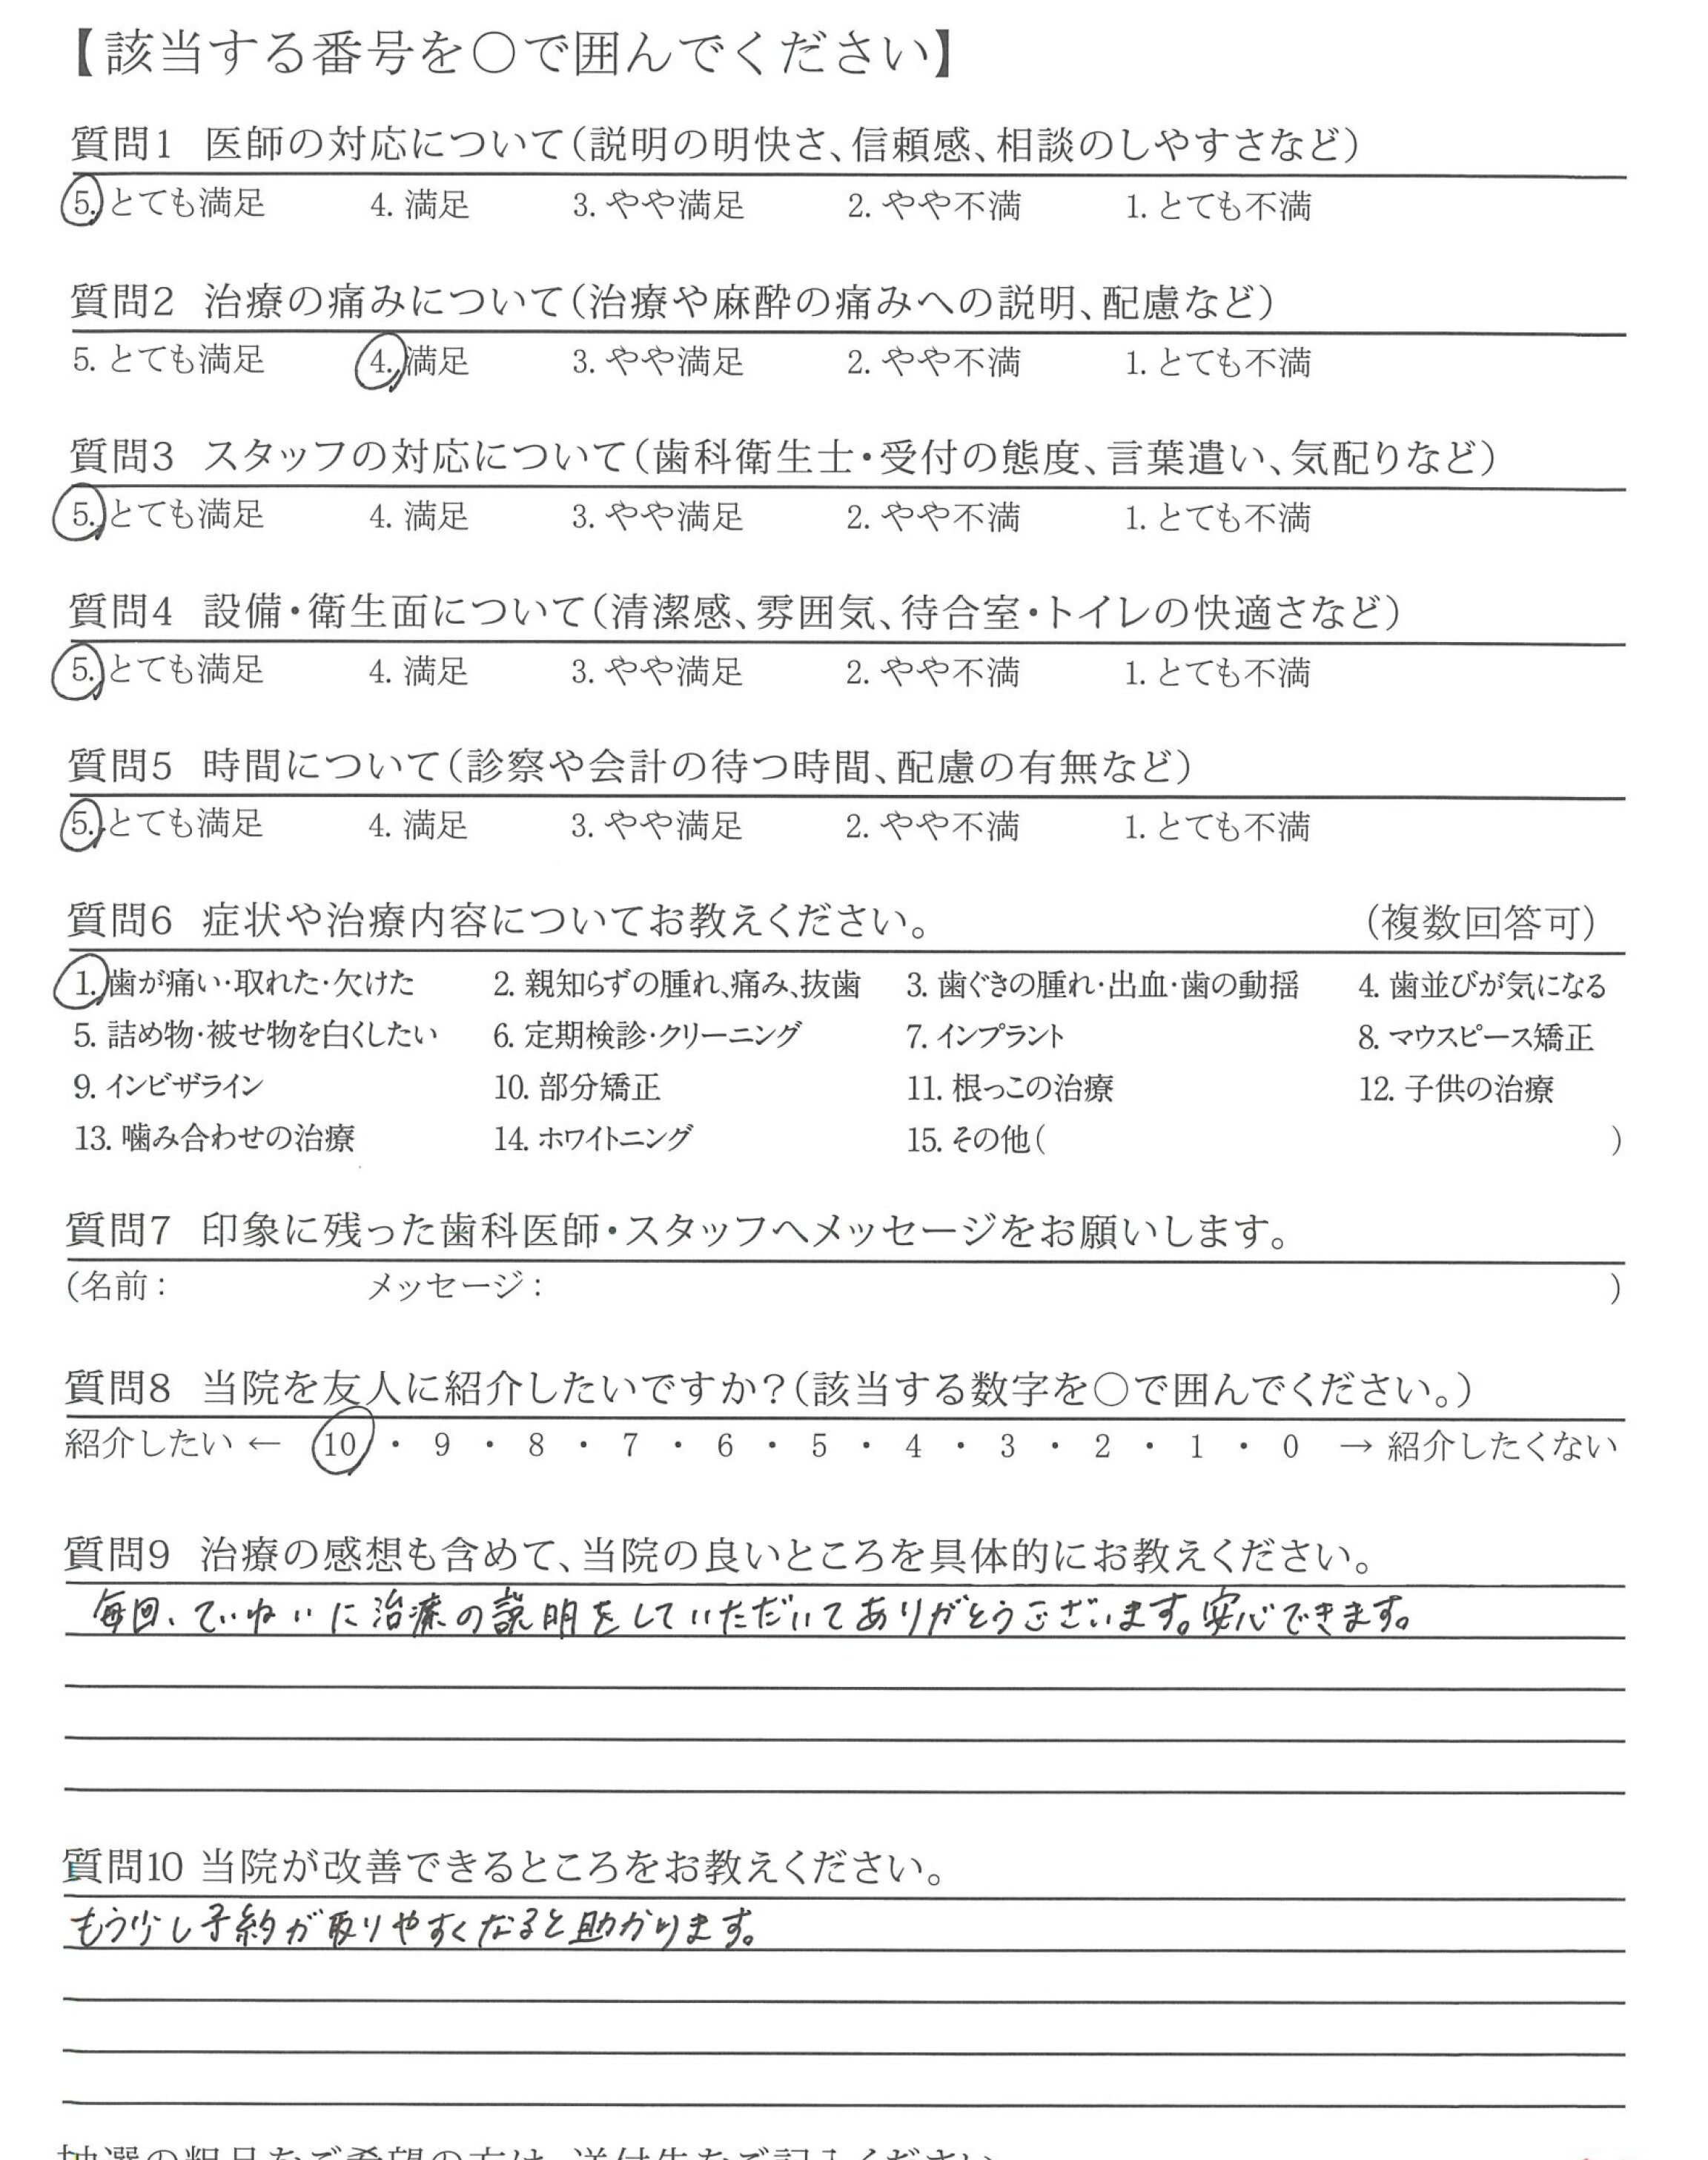 【該当する番号を○で囲んでください】
質問1 医師の対応について(説明の明快さ、信頼感、相談のしやすさなど)
5. とても満足 4. 満足 3. やや満足 2. やや不満 1. とても不満
質問2 治療の痛みについて(治療や麻酔の痛みへの説明、配慮など)
5. とても満足 4. 満足 3. やや満足 2. やや不満 1. とても不満
質問3 スタッフの対応について(歯科衛生士・受付の態度、言葉遣い、気配りなど)
5. とても満足 4. 満足 3. やや満足 2. やや不満 1. とても不満
質問4 設備・衛生面について(清潔感、雰囲気、待合室・トイレの快適さなど)
5. とても満足 4. 満足 3. やや満足 2. やや不満 1. とても不満
質問5 時間について(診察や会計の待つ時間、配慮の有無など)
5. とても満足 4. 満足 3. やや満足 2. やや不満 1. とても不満
質問6 症状や治療内容についてお教えください。 (複数回答可)
1. 歯が痛い・取れた・欠けた 2. 親知らずの腫れ、痛み、抜歯 3. 歯ぐきの腫れ・出血・歯の動揺 4. 歯並びが気になる
5. 詰め物・被せ物を白くしたい 6. 定期検診・クリーニング 7. インプラント 8. マウスピース矯正
9. インビザライン 10. 部分矯正 11. 根っこの治療 12. 子供の治療
13. 噛み合わせの治療 14. ホワイトニング 15. その他( )
質問7 印象に残った歯科医師・スタッフへメッセージをお願いします。
(名前: メッセージ: )
質問8 当院を友人に紹介したいですか?(該当する数字を○で囲んでください。)
紹介したい ← 10 ・ 9 ・ 8 ・ 7 ・ 6 ・ 5 ・ 4 ・ 3 ・ 2 ・ 1 ・ 0 → 紹介したくない
質問9 治療の感想も含めて、当院の良いところを具体的にお教えください。
毎回、ていねいに治療の説明をしていただいてありがとうございます。安心できます。
質問10 当院が改善できるところをお教えください。
もう少し予約が取りやすくなると助かります。
抽選の粗品をご希望の方は、送付先をご記入ください